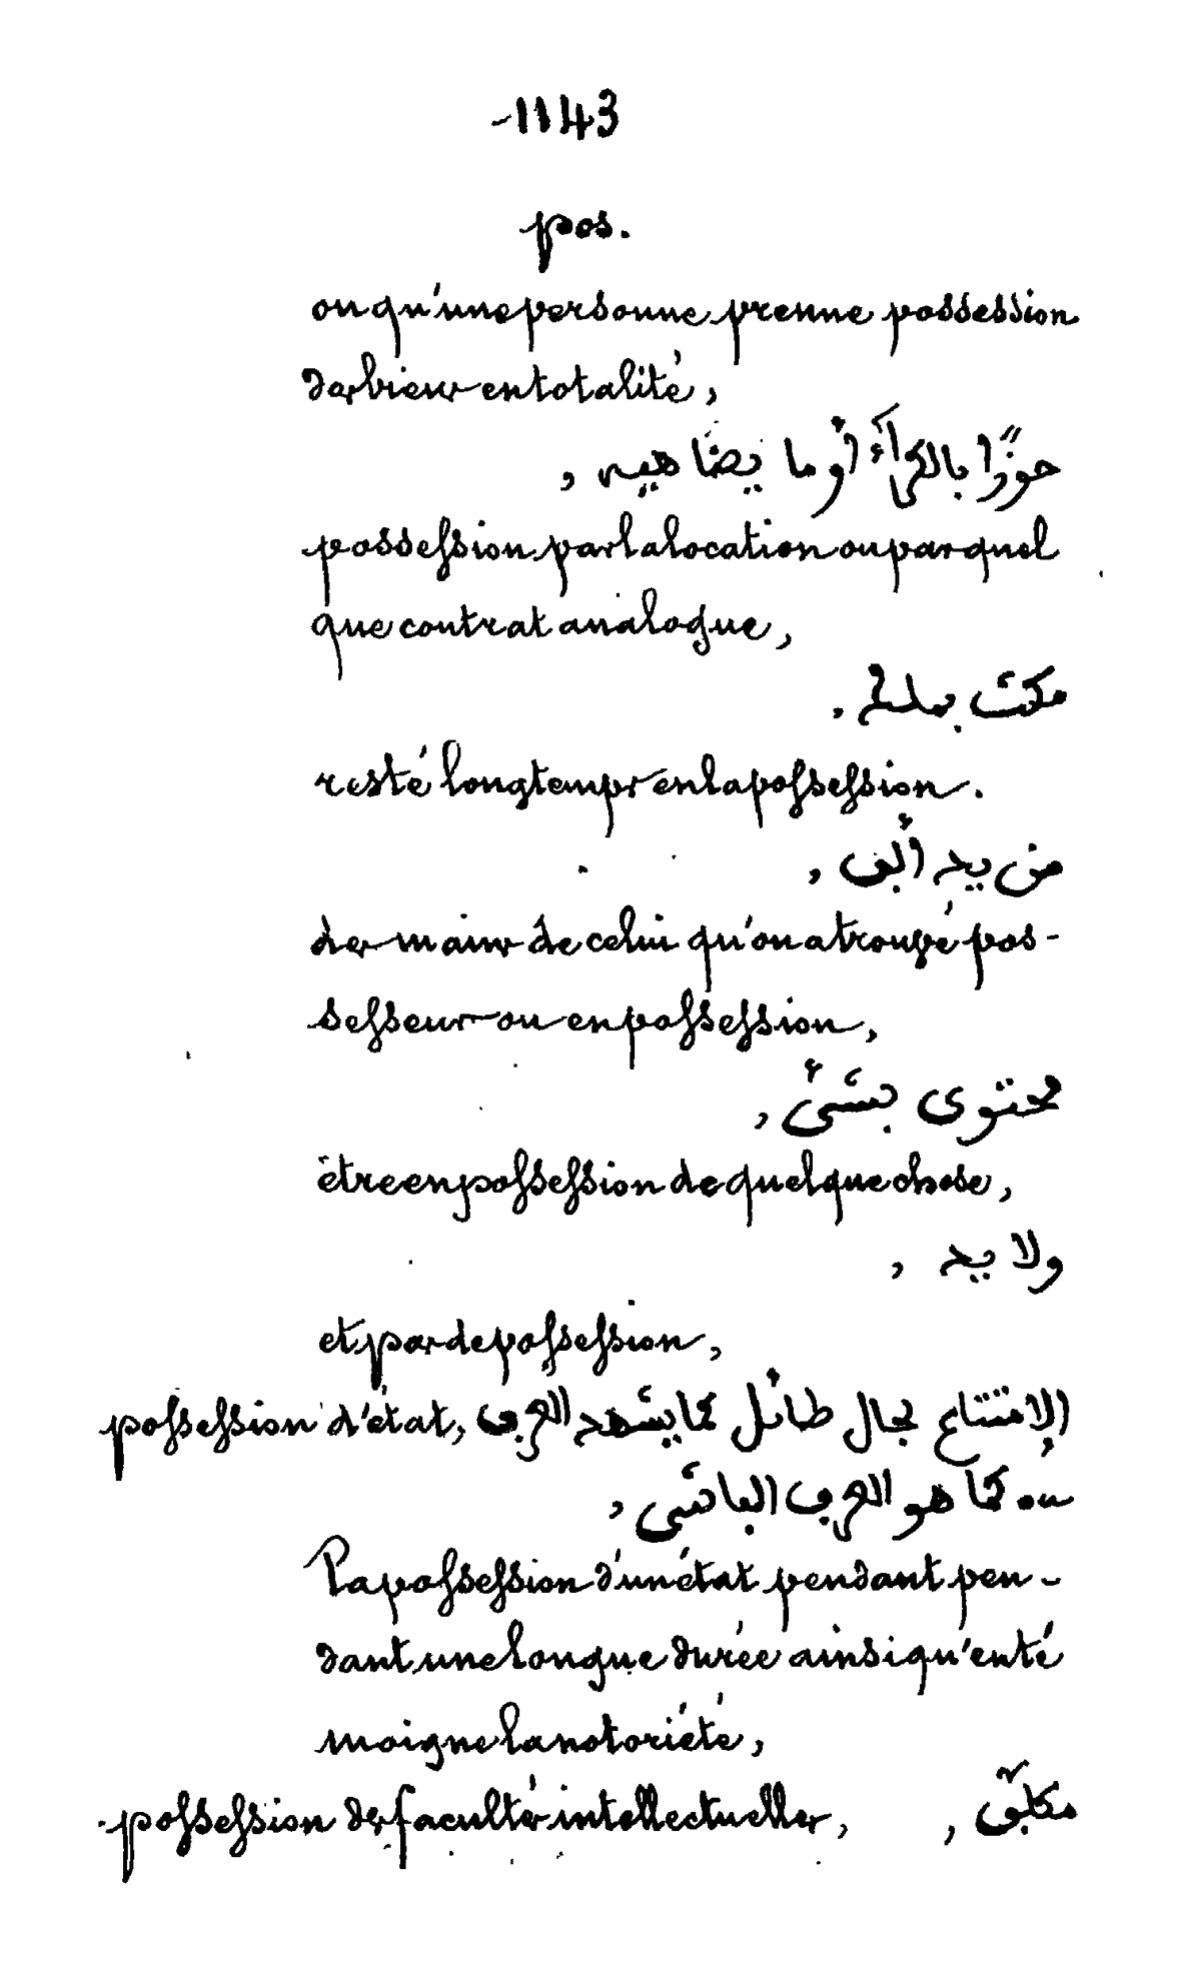 1143
pos.
ou qu'une personne prenne possession
des biens en totalité,
حوزًا بالكراء أو ما يضاهيه,
possession par la location ou par quel
que contrat analogue,
مكث بيده.
resté longtemps en la possession.
من يد
des mains de celui qu'on a trouvé pos-
sesseur ou en possession,
محتوى بشئ,
être en possession de quelque chose,
ولا يد,
et pas de possession,
possession d'état, كما يشهد العرف
ou كما هو العرف
La possession d'un état pendant pen-
dant une longue durée ainsi qu'en té
moigne la notoriété,
possession des facultés intellectuelles,